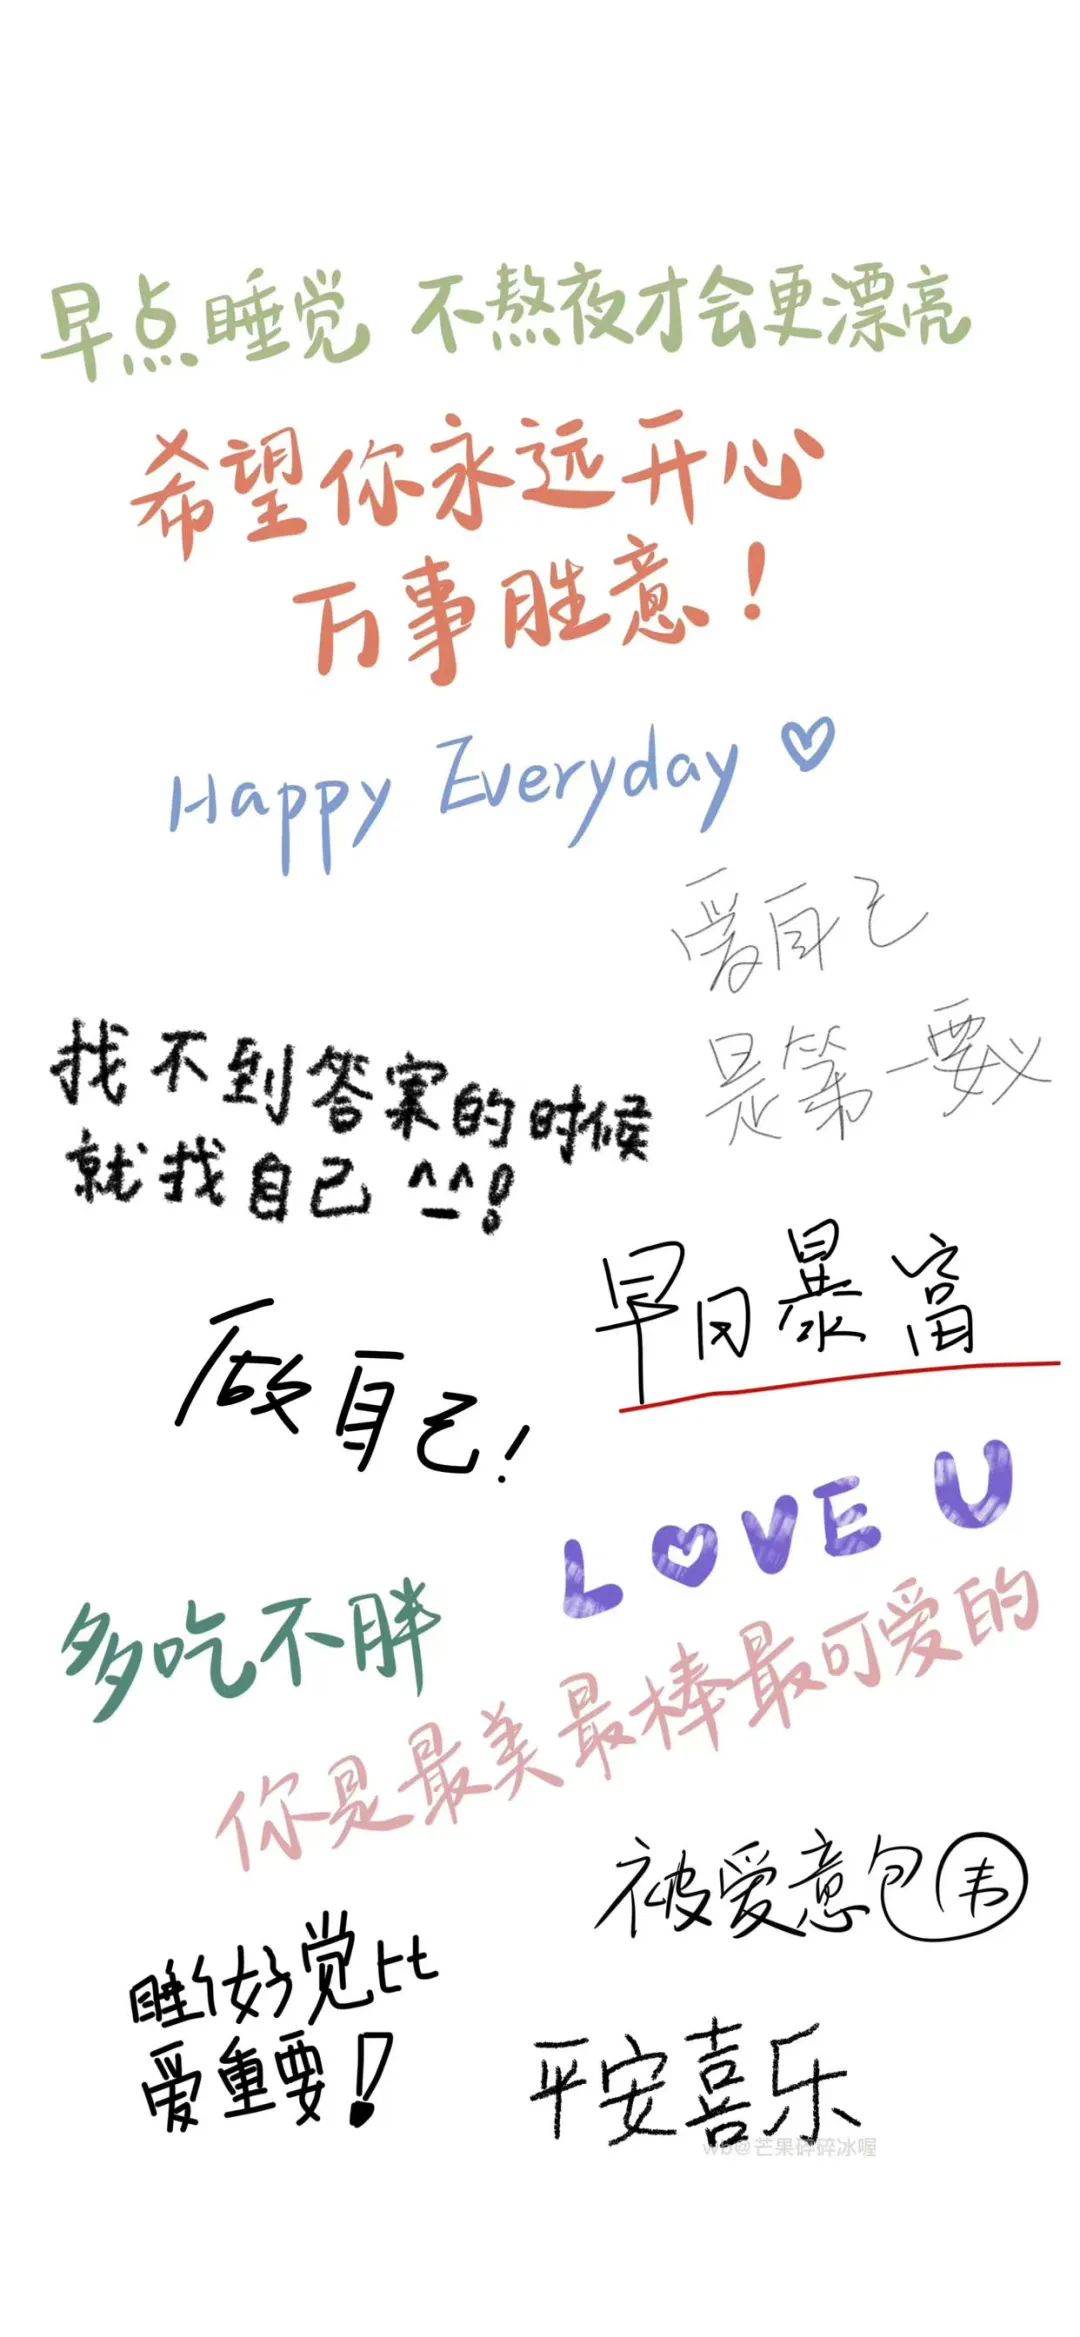 早点睡觉 不熬夜才会更漂亮
希望你永远开心
万事胜意！
Happy Everyday ♡
爱自己
是第一要义
找不到答案的时候
就找自己 ^_^！
早日暴富
做自己！
LOVE U
多吃不胖
你是最美最棒最可爱的
被爱意包韦
睡个好觉比
爱重要！
平安喜乐
wb@芒果碎碎冰喔